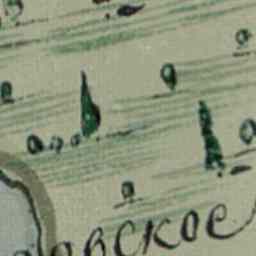 овское